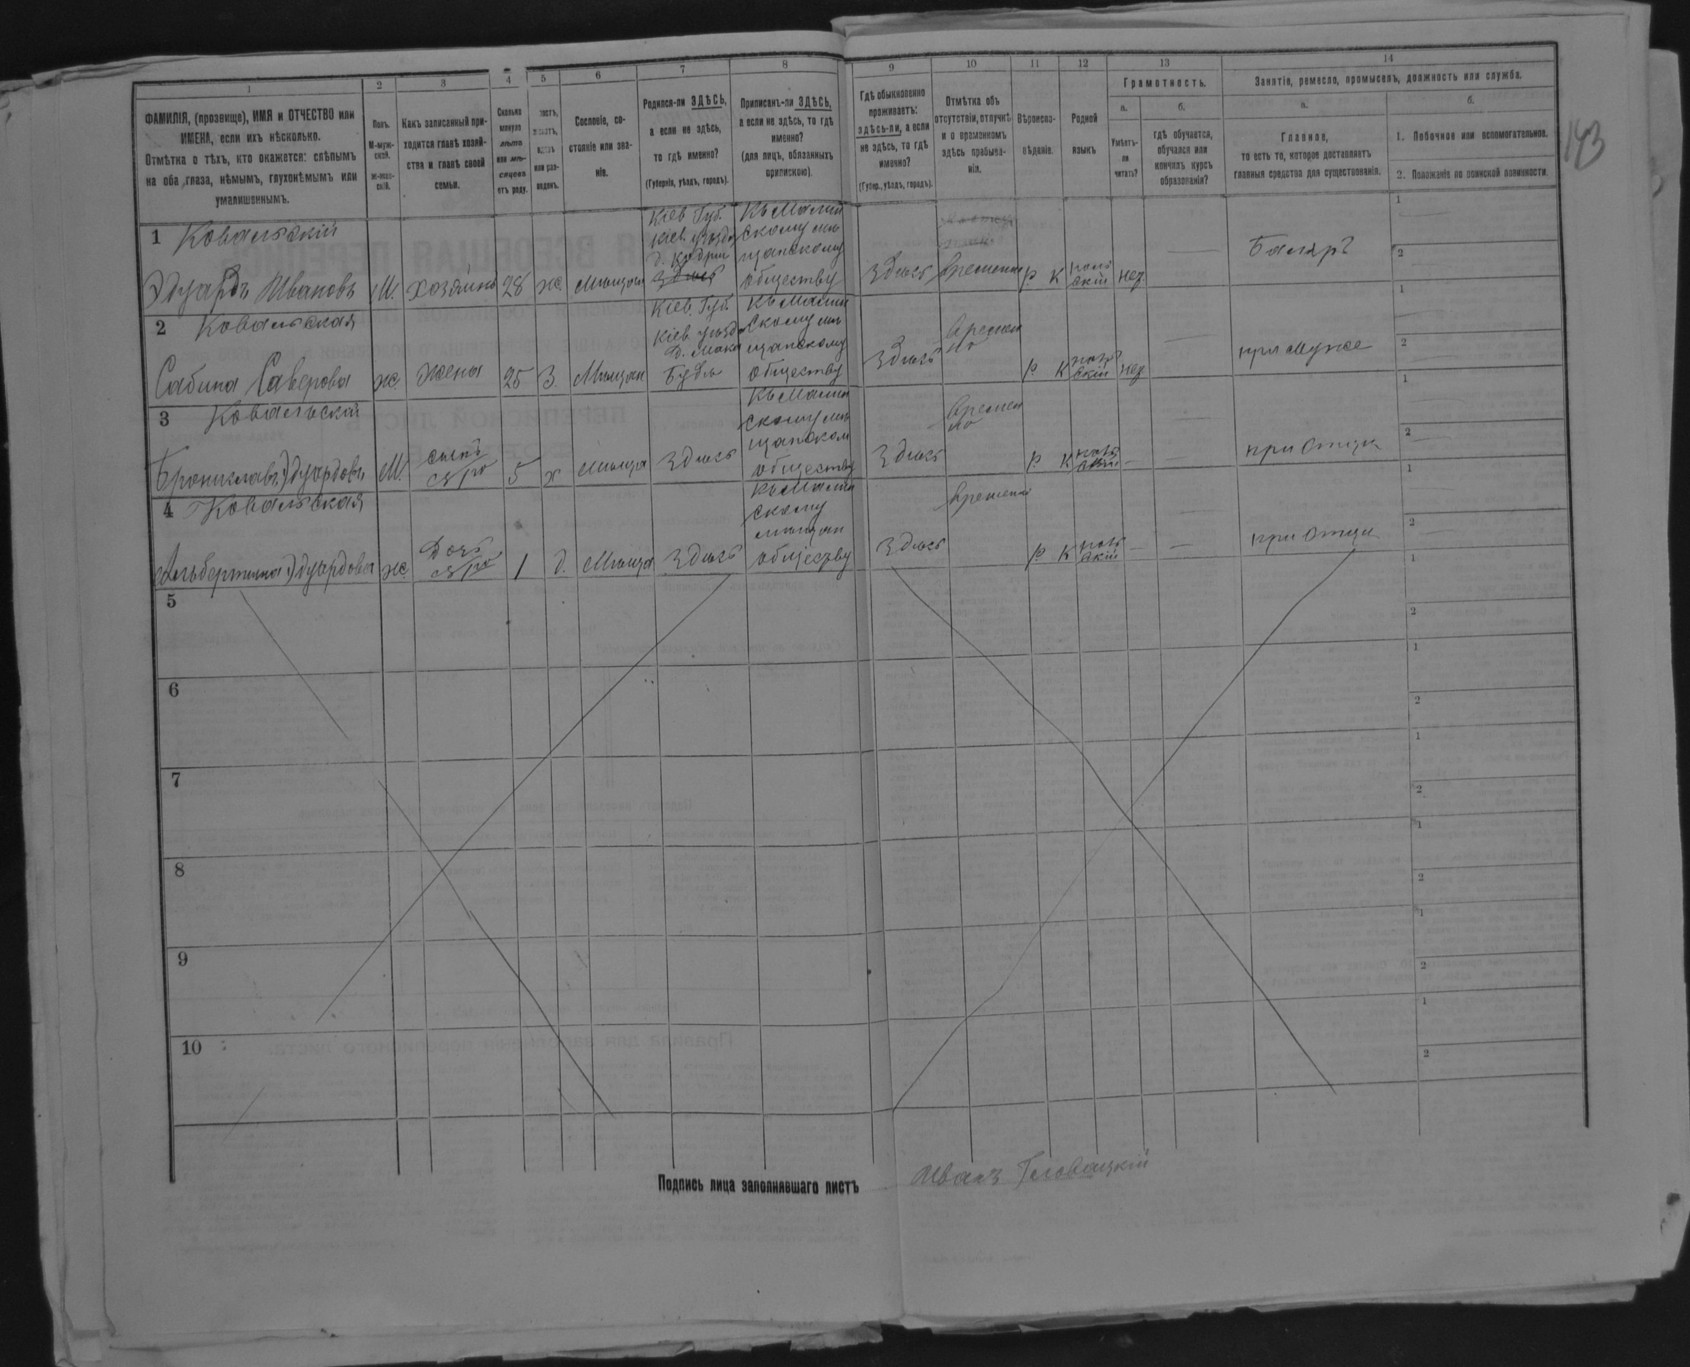 1 2 3 4 5 6 7 8 9 10 11 12 13 14
ФАМИЛІЯ, (прозвище), ИМЯ и ОТЧЕСТВО или
ИМЕНА, если ихъ нѣсколько.
Отмѣтка о тѣхъ, кто окажется: слѣпымъ
на оба глаза, нѣмымъ, глухонѣмымъ или
умалишоннымъ.
Полъ.
М-муж-
ской.
Ж-жен-
скій.
Какъ записанный при-
ходится главѣ хозяй-
ства и главѣ своей
семьи.
Сколько
минуло
лѣтъ
или мѣ-
сяцевъ
отъ роду.
или раз-
веденъ.
Сословіе, со-
стояніе или зва-
ніе.
Родился-ли ЗДѢСЬ,
а если не здѣсь,
то гдѣ именно?
(Губернія, уѣздъ, городъ).
Приписанъ-ли ЗДѢСЬ,
а если не здѣсь, то гдѣ
именно?
(для лицъ, обязанныхъ
припискою).
Гдѣ обыкновенно
проживаетъ:
здѣсь-ли, а если
не здѣсь, то гдѣ
именно?
(Губер., уѣздъ, городъ).
Отмѣтка объ
отсутствіи, отлучкѣ
и о временномъ
здѣсь пребыва-
ніи.
Вѣроиспо-
вѣданіе.
Родной
языкъ
Грамотность.
а.
Умѣетъ-
ли
читать?
б.
гдѣ обучается,
обучался или
кончилъ курсъ
образованія?
Занятіе, ремесло, промыселъ, должность или служба.
а.
Главная,
то есть то, которое доставляетъ
главныя средства для существованія.
б.
1. Побочное или вспомогательное.
2. Положеніе по воинской повинности.
143
1 Ковальскій
Эдуардъ Ивановъ
М.
хозяинъ
28
ж
Кіев. Губ.
Кіев. уѣзда
здѣсь
обществу
Здѣсь
Р К
поль
скій
нед
1
2
2 Ковальская
Сабина
ж
жена
25
З
Мѣщан
Кіев. Губ.
Кіев. уѣзд
обществу
Здѣсь
Времен
но
Р К
поль
скій
нед
при мужѣ
1
2
3 Ковальскій
Брониславъ Эдуардовъ
М.
сынъ
5
х
Здѣсь
обществу
Здѣсь
Времен
но
Р К
поль
скій
при отцѣ
1
2
4 Ковальская
Альбертина Эдуардова
ж
Дочь
1
д.
Здѣсь
скому
мѣщан
обществу
Здѣсь
Времено
Р К
поль
скій
при отцѣ
1
2
5
1
2
6
1
2
7
1
2
8
1
2
9
1
2
10
1
2
Подпись лица заполнявшаго листъ
Иванъ Головацкій